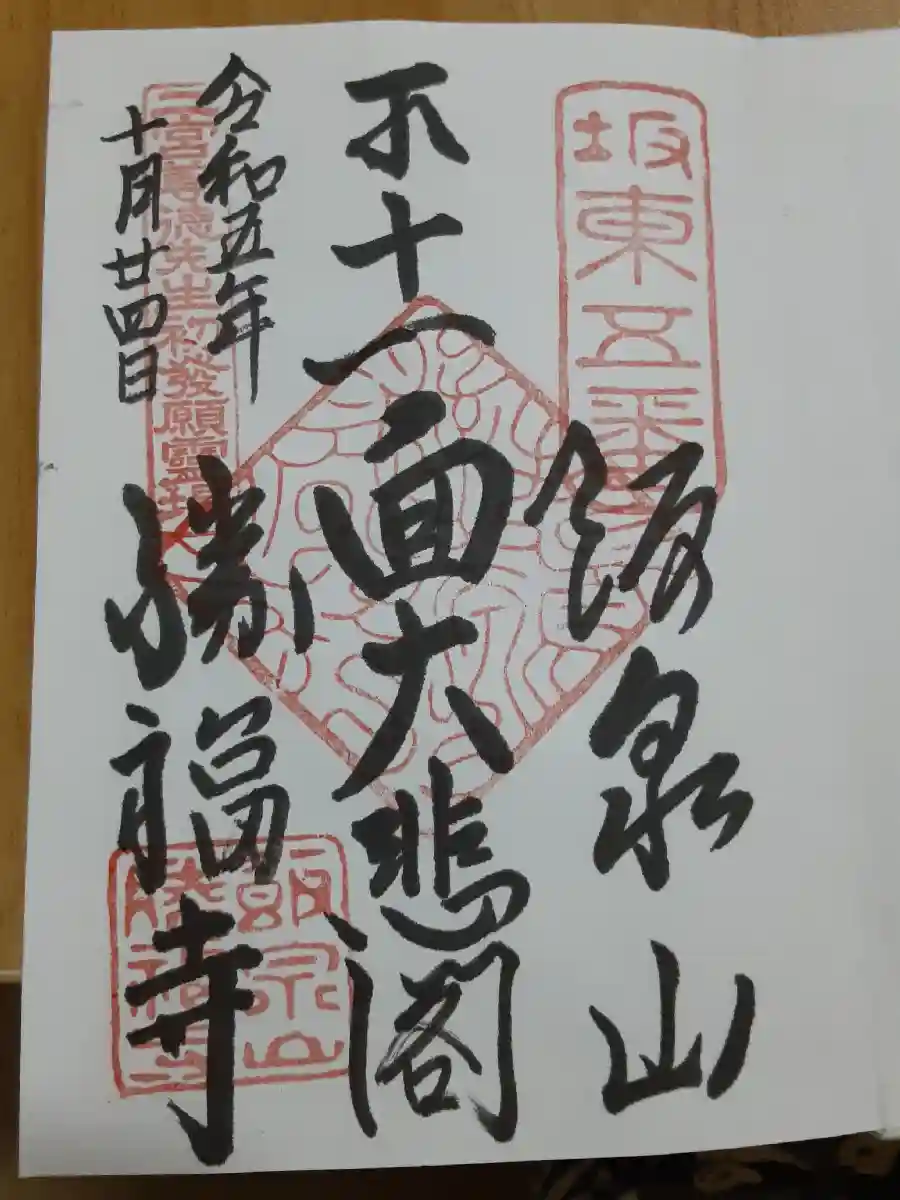 坂東五番
飯泉山
十一面大悲閣
令和五年
十月廿四日
二宮尊徳先生初發願靈場
勝福寺
飯泉山
勝福寺